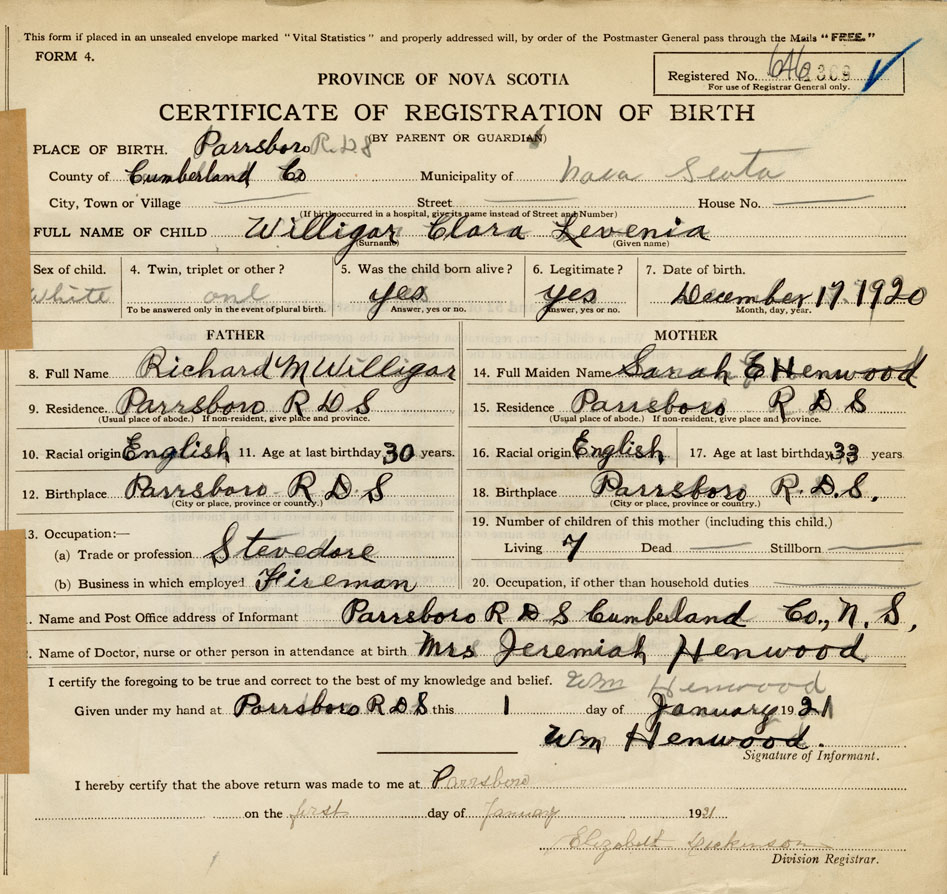 This form if placed in an unsealed envelope marked "Vital Statistics" and properly addressed will, by order of the Postmaster General pass through the Mails "FREE."
FORM 4.
Registered No. 646
For use of Registrar General only.
PROVINCE OF NOVA SCOTIA
CERTIFICATE OF REGISTRATION OF BIRTH
(BY PARENT OR GUARDIAN)
PLACE OF BIRTH. Parrsboro R.D.S
County of Cumberland Co Municipality of Nova Scotia
City, Town or Village Street House No.
(If birth occurred in a hospital, give its name instead of Street and Number)
FULL NAME OF CHILD Willigar Clara Levenia
(Surname) (Given name)
Sex of child. 4. Twin, triplet or other? 5. Was the child born alive? 6. Legitimate? 7. Date of birth.
White one yes yes December 17 1920
To be answered only in the event of plural birth. Answer, yes or no. Answer, yes or no. Month, day, year.
FATHER MOTHER
8. Full Name Richard M Willigar 14. Full Maiden Name Sarah E Henwood
9. Residence. Parrsboro R D S 15. Residence Parrsboro R. D S
(Usual place of abode.) If non-resident, give place and province. (Usual place of abode.) If non-resident, give place and province.
10. Racial origin English 11. Age at last birthday 30 years. 16. Racial origin English 17. Age at last birthday 33 years
12. Birthplace Parrsboro R D S 18. Birthplace Parrsboro R.D.S.
(City or place, province or country.) (City or place, province or country.)
13. Occupation:— 19. Number of children of this mother (including this child.)
(a) Trade or profession Stevedore Living 7 Dead Stillborn
(b) Business in which employed Fireman 20. Occupation, if other than household duties
Name and Post Office address of Informant Parrsboro R D S Cumberland Co., N. S.,
Name of Doctor, nurse or other person in attendance at birth Mrs Jeremiah Henwood
I certify the foregoing to be true and correct to the best of my knowledge and belief. Wm Henwood
Given under my hand at Parrsboro R D S this 1 day of January 1921
Wm Henwood.
Signature of Informant.
I hereby certify that the above return was made to me at Parrsboro
on the first day of January 1931
Elizabeth Dickinson
Division Registrar.